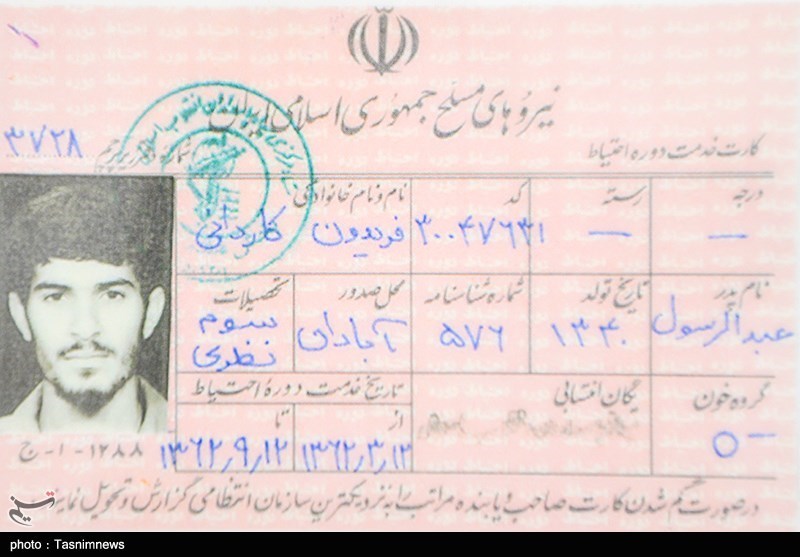 نیروهای مسلح جمهوری اسلامی ایران
کارت خدمت دوره احتیاط
۳۷۲۸
درجه
رسته
کد
نام و نام خانوادگی
—
—
۳۰۰۴۷۶۳۱
فریدون کاردانی
نام پدر
تاریخ تولد
شماره شناسنامه
محل صدور
تحصیلات
عبدالرسول
۱۳۴۰
۵۷۶
آبادان
سوم نظری
گروه خون
یگان انتسابی
تاریخ خدمت دوره احتیاط
از
تا
O -
۱۳۶۲٫۳٫۱۲
۱۳۶۲٫۹٫۱۲
ج - ۱ - ۱۲۸۸
در صورت گم شدن کارت صاحب و یا بنده مراتب را به نزدیکترین سازمان انتظامی گزارش و تحویل نماید
تسنیم
photo : Tasnimnews